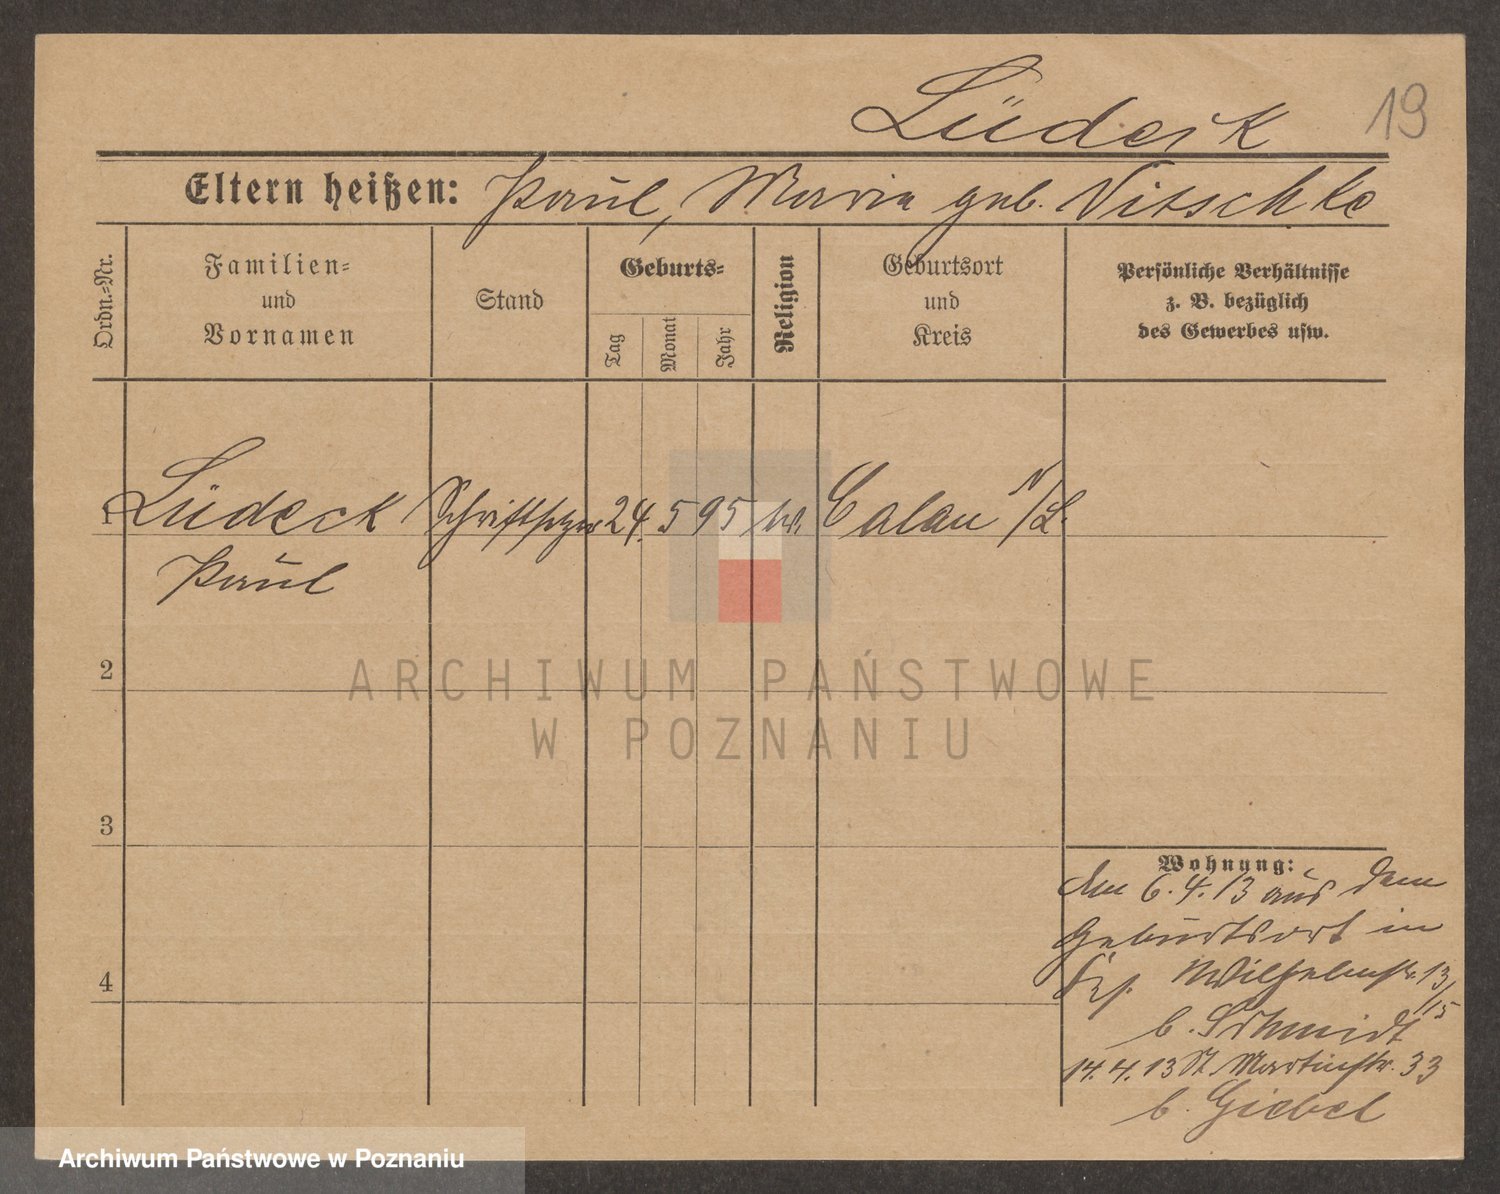 Lüdeck 19
Eltern heißen: Paul, Maria geb. Nitschke
Ordn.-Nr.
Familien-
und
Vornamen
Stand
Geburts-
Tag
Monat
Jahr
Religion
Geburtsort
und
Kreis
Persönliche Verhältnisse
z. B. bezüglich
des Gewerbes usw.
1 Lüdeck Schriftsetzer 24. 5 95 Calau N/L.
Paul
2
3
4
Wohnung:
Am 6.4.13 aus dem
Geburtsort in
Wilhelmstr. 13/15
b. Schmidt
14.4.13 St Martinstr. 33
b. Giebel
ARCHIWUM PAŃSTWOWE
W POZNANIU
Archiwum Państwowe w Poznaniu